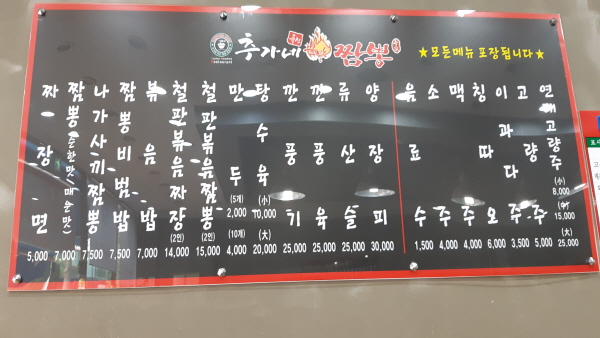 추가네 짬뽕
★모든메뉴 포장됩니다★
짜장면 5,000
짬뽕 순한맛 매운맛 7,000
나가사끼짬뽕 7,500
짬뽕비빔밥 7,500
볶음밥 7,000
철판볶음짜장 (2인) 14,000
철판볶음짬뽕 (2인) 15,000
만두 (5개) 2,000 (10개) 4,000
탕수육 (小) 10,000 (大) 20,000
깐풍기 25,000
깐풍육 25,000
류산슬 25,000
양장피 30,000
음료수 1,500
소주 4,000
맥주 4,000
칭따오 6,000
이과다주 3,500
고량주 5,000
연태고량주 (小) 8,000 (中) 15,000 (大) 25,000